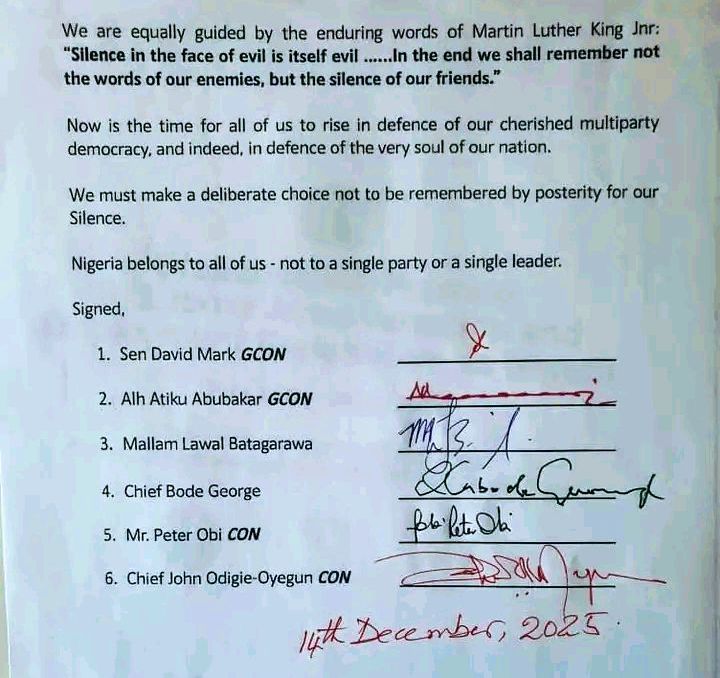 We are equally guided by the enduring words of Martin Luther King Jnr:
"Silence in the face of evil is itself evil ......In the end we shall remember not
the words of our enemies, but the silence of our friends."
Now is the time for all of us to rise in defence of our cherished multiparty
democracy, and indeed, in defence of the very soul of our nation.
We must make a deliberate choice not to be remembered by posterity for our
Silence.
Nigeria belongs to all of us - not to a single party or a single leader.
Signed,
1. Sen David Mark GCON
2. Alh Atiku Abubakar GCON
3. Mallam Lawal Batagarawa
4. Chief Bode George
5. Mr. Peter Obi CON Peter Obi
6. Chief John Odigie-Oyegun CON
14th December, 2025.